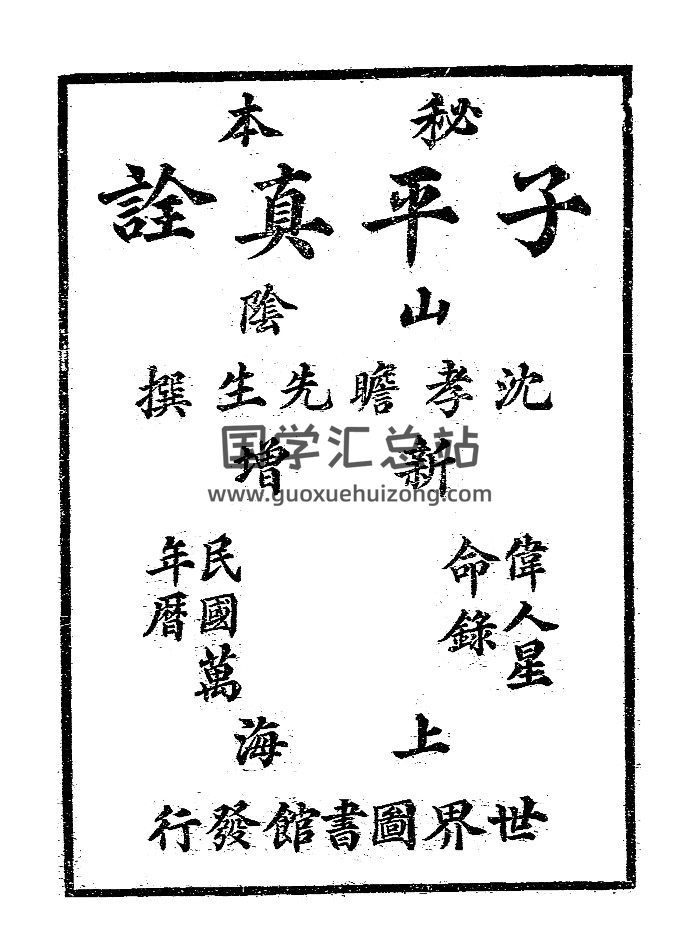 秘本
子平真詮
山陰
沈孝瞻先生撰
新增
偉人星
命錄
民國萬
年曆
上海
世界圖書館發行
国学汇总站
www.guoxuehuizong.com